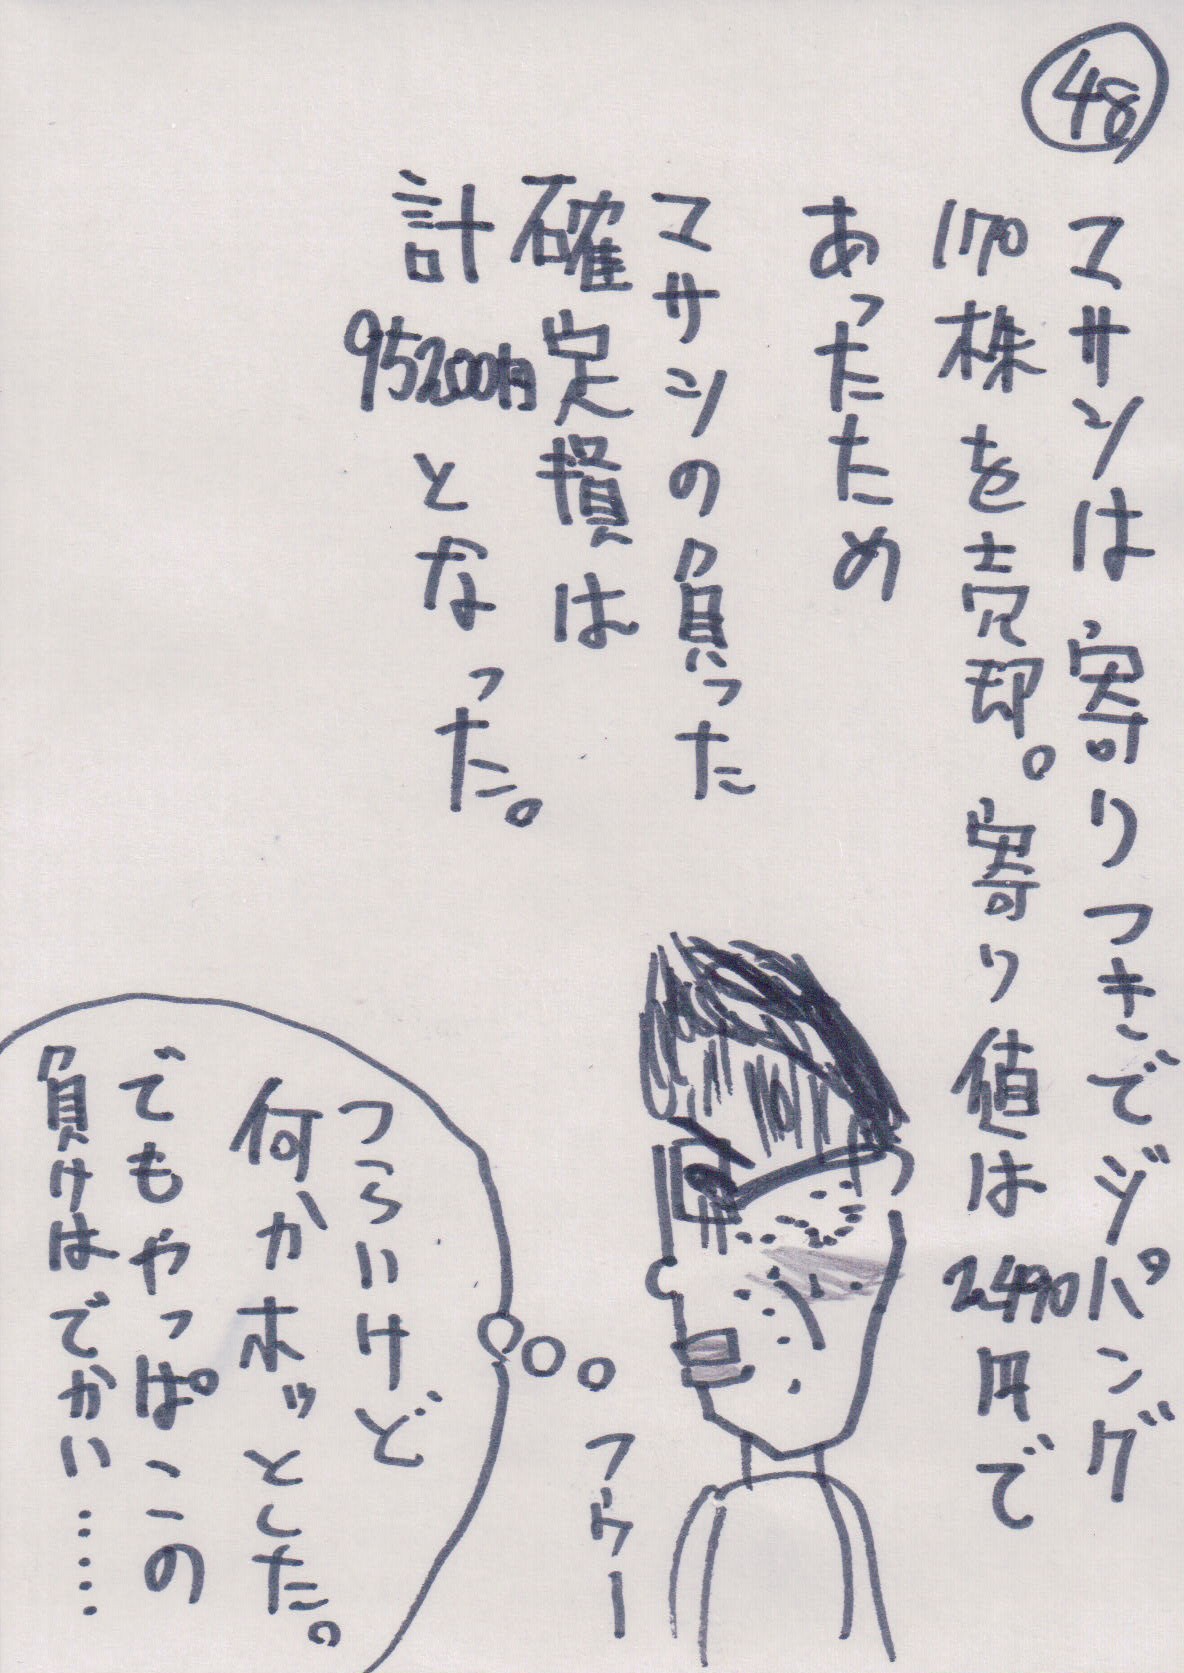 48
マサシは寄りつきでジパング
170株を売却。寄り値は2490円で
あったため
マサシの負った
確定損は
計95200円となった。
フゥー
つらいけど
何かホッとした。
でもやっぱこの
負けはでかい……